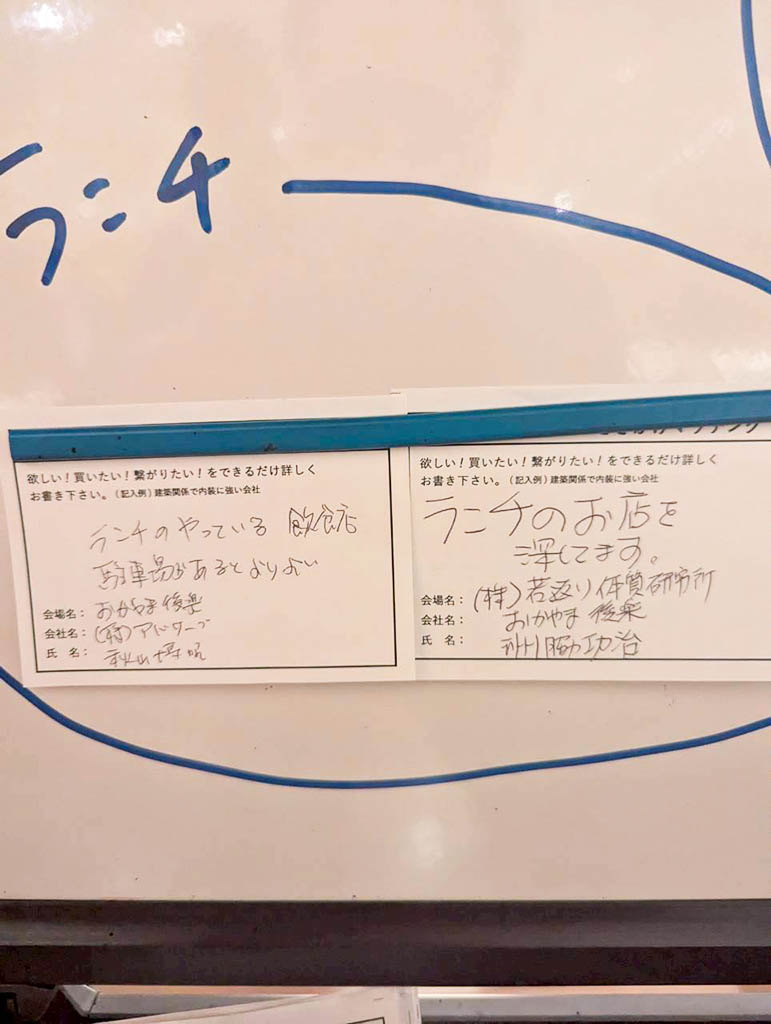 ランチ
欲しい!買いたい!繋がりたい!をできるだけ詳しく
お書き下さい。(記入例)建築関係で内装に強い会社
ランチのやっている 飲食店
駐車場があるとよりよい
会場名: おかやま後楽
会社名: (株)アドターブ
氏 名:
欲しい!買いたい!繋がりたい!をできるだけ詳しく
お書き下さい。(記入例)建築関係で内装に強い会社
ランチのお店を
深してます。
会場名: (株)若返り体質研究所
会社名: おかやま 後楽
氏 名: 功治